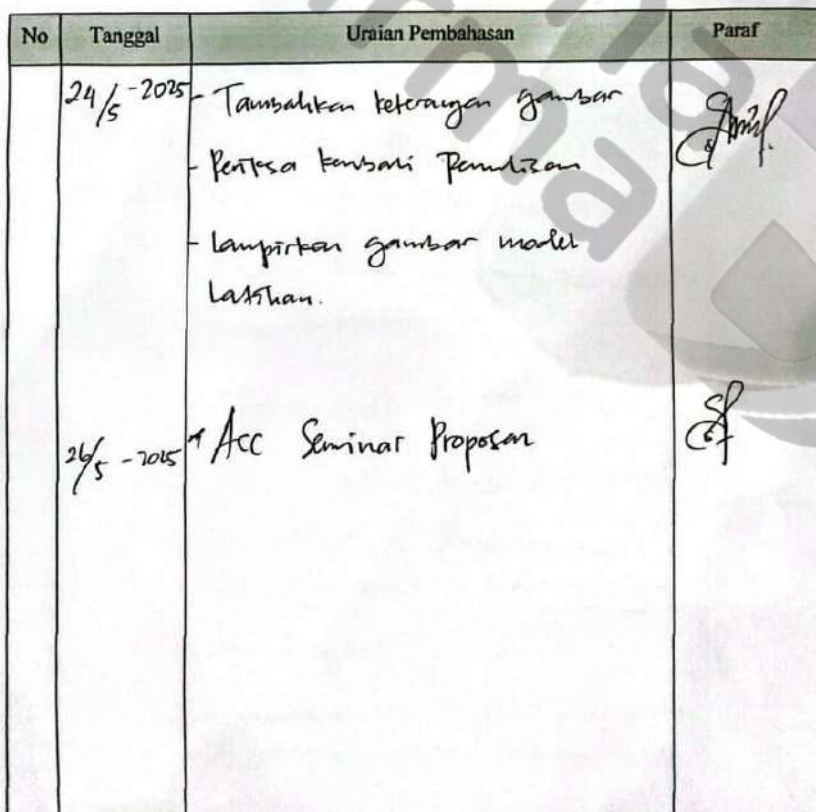 No Tanggal Uraian Pembahasan Paraf
24/5 - 2025 - Tambahkan keterangan gambar
- Periksa kembali Penulisan
- Lampirkan gambar model
Latihan.
26/5 - 2025 * Acc Seminar Proposal